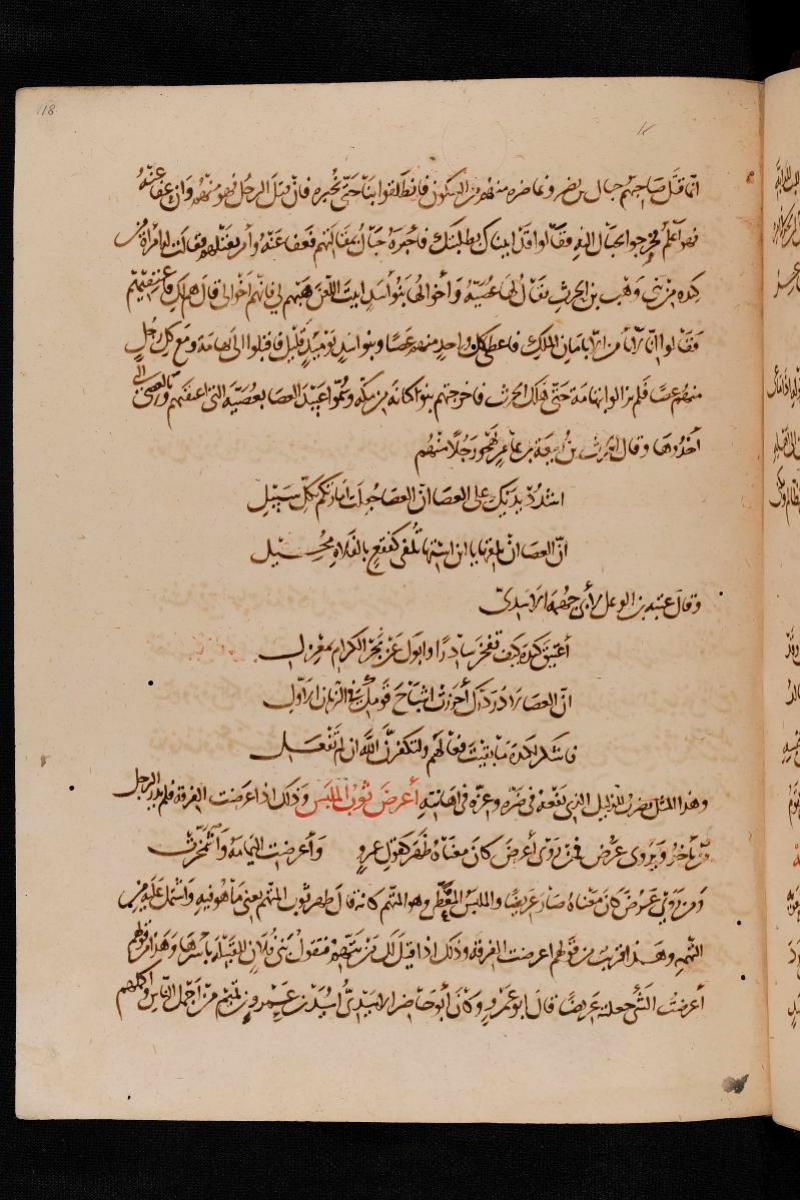 18
انما قتل صاحبهم جبال بن نصر وغاضرة من السكون فانطلقوا بنا حتى نخبره فان قتل الرجل فهو منهم وان عفا عنه
فهو اعلم فخرجوا بجبال اليه فقالوا قد اتيناك بطلبتك فاخبره جبال بمقالتهم فعفا عنه وأمر بقتلهم فقالت له امرأة من
كندة من بني وهب بن الحرث يقال لها عصية وأخوالها بنو أسد ابيت اللعن هبهم لي فانهم اخوالي قال هم لك فاعتقتهم
فقالوا انا لا نأمن الا بامان الملك فاعطى كل واحد منهم عصا وبنو اسد يومئذ قليل فاقبلوا الى تهامة ومع كل رجل
منهم عصا فلم يزالوا بتهامة حتى هلك الحرث فاخرجتهم بنو كنانة من مكة وسموا عبيد العصا بعصية التي اعتقتهم وبالعصي التي
أخذوها وقال الحرث بن ربيعة بن عامر يهجو رجلا منهم
اشدد يديك على العصا ان العصا جعلت امارتكم بكل سبيل
ان العصا ان تلقها يا ابن استها تلفى كفقع بالفلاة محيل
وقال عتبة بن الوعل لأبي جهمة الاسدي
أعتيق كندة كيف تفخر سادرا وابوك عن مجد الكرام بمعزل
ان العصا لا در درك أحرزت اشياخ قومك في الزمان الاول
فاشكر لكندة ما بقيت فعالهم ولتكفرن الله ان لم تفعل
وهذا المثل يضرب للذليل الذي نفعه في ضره وعزه في اهانته أعرض ثوب الملبس وذلك اذا عرضت القرفة فلم يدر الرجل
من يأخذ ويروى عرض فمن روى أعرض كان معناه ظهر كقول عمرو وأعرضت اليمامة واشمخرت
ومن روى عرض كان معناه صار عريضا والملبس المغطى وهو المتهم كانه قال ظهر ثوب المتهم يعني ما هو فيه واشتمل عليه من
التهمة وهذا قريب من قولهم اعرضت القرفة وذلك اذا قيل لك من تتهم فتقول بني فلان للقبيلة بأسرها وهذا من قولهم
أعرضت الشيء جعلته عريضا قال ابو عمرو وكان أبو حاضر الاسيدي اسيد بن عمرو بن تميم من أجمل الناس واكملهم